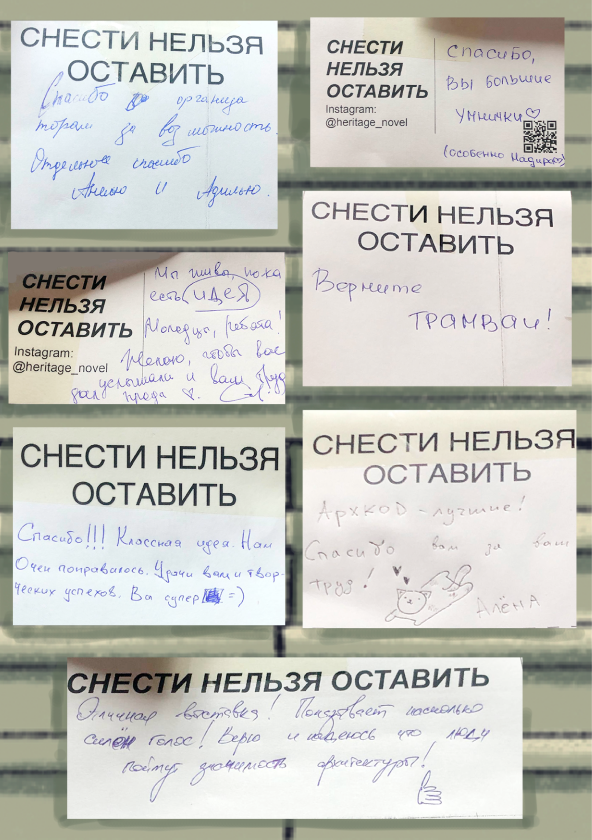 СНЕСТИ НЕЛЬЗЯ
ОСТАВИТЬ
Спасибо организа
торам за возможность.
Отдельное спасибо
и Адилью.
СНЕСТИ
НЕЛЬЗЯ
ОСТАВИТЬ
Instagram:
@heritage_novel
Спасибо,
Вы большие
умнички♡
(особенно
СНЕСТИ НЕЛЬЗЯ
ОСТАВИТЬ
Верните
ТРАМВАИ!
СНЕСТИ
НЕЛЬЗЯ
ОСТАВИТЬ
Instagram:
@heritage_novel
Мы живы, пока
есть ИДЕЯ
Молодцы, ребята!
Желаю, чтобы вас
услышали и ваш труд
СНЕСТИ НЕЛЬЗЯ
ОСТАВИТЬ
Спасибо!!! Классная идея. Нам
Очен понравилось. Удачи вам и твор-
ческих успехов. Вы супер =)
СНЕСТИ НЕЛЬЗЯ
ОСТАВИТЬ
АРХКОД - лучшие!
Спасибо вам за ваш
труд!
АЛЁНА
СНЕСТИ НЕЛЬЗЯ ОСТАВИТЬ
Отличная выставка! Показывает насколько
силён голос! Верю и надеюсь что люди
поймут значимость архитектуры!